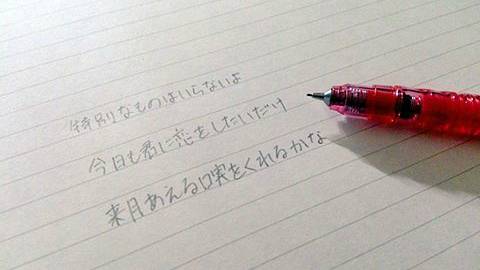 特別なものはいらないよ
今日も君に恋をしたいだけ
来月あえる口実をくれるかな